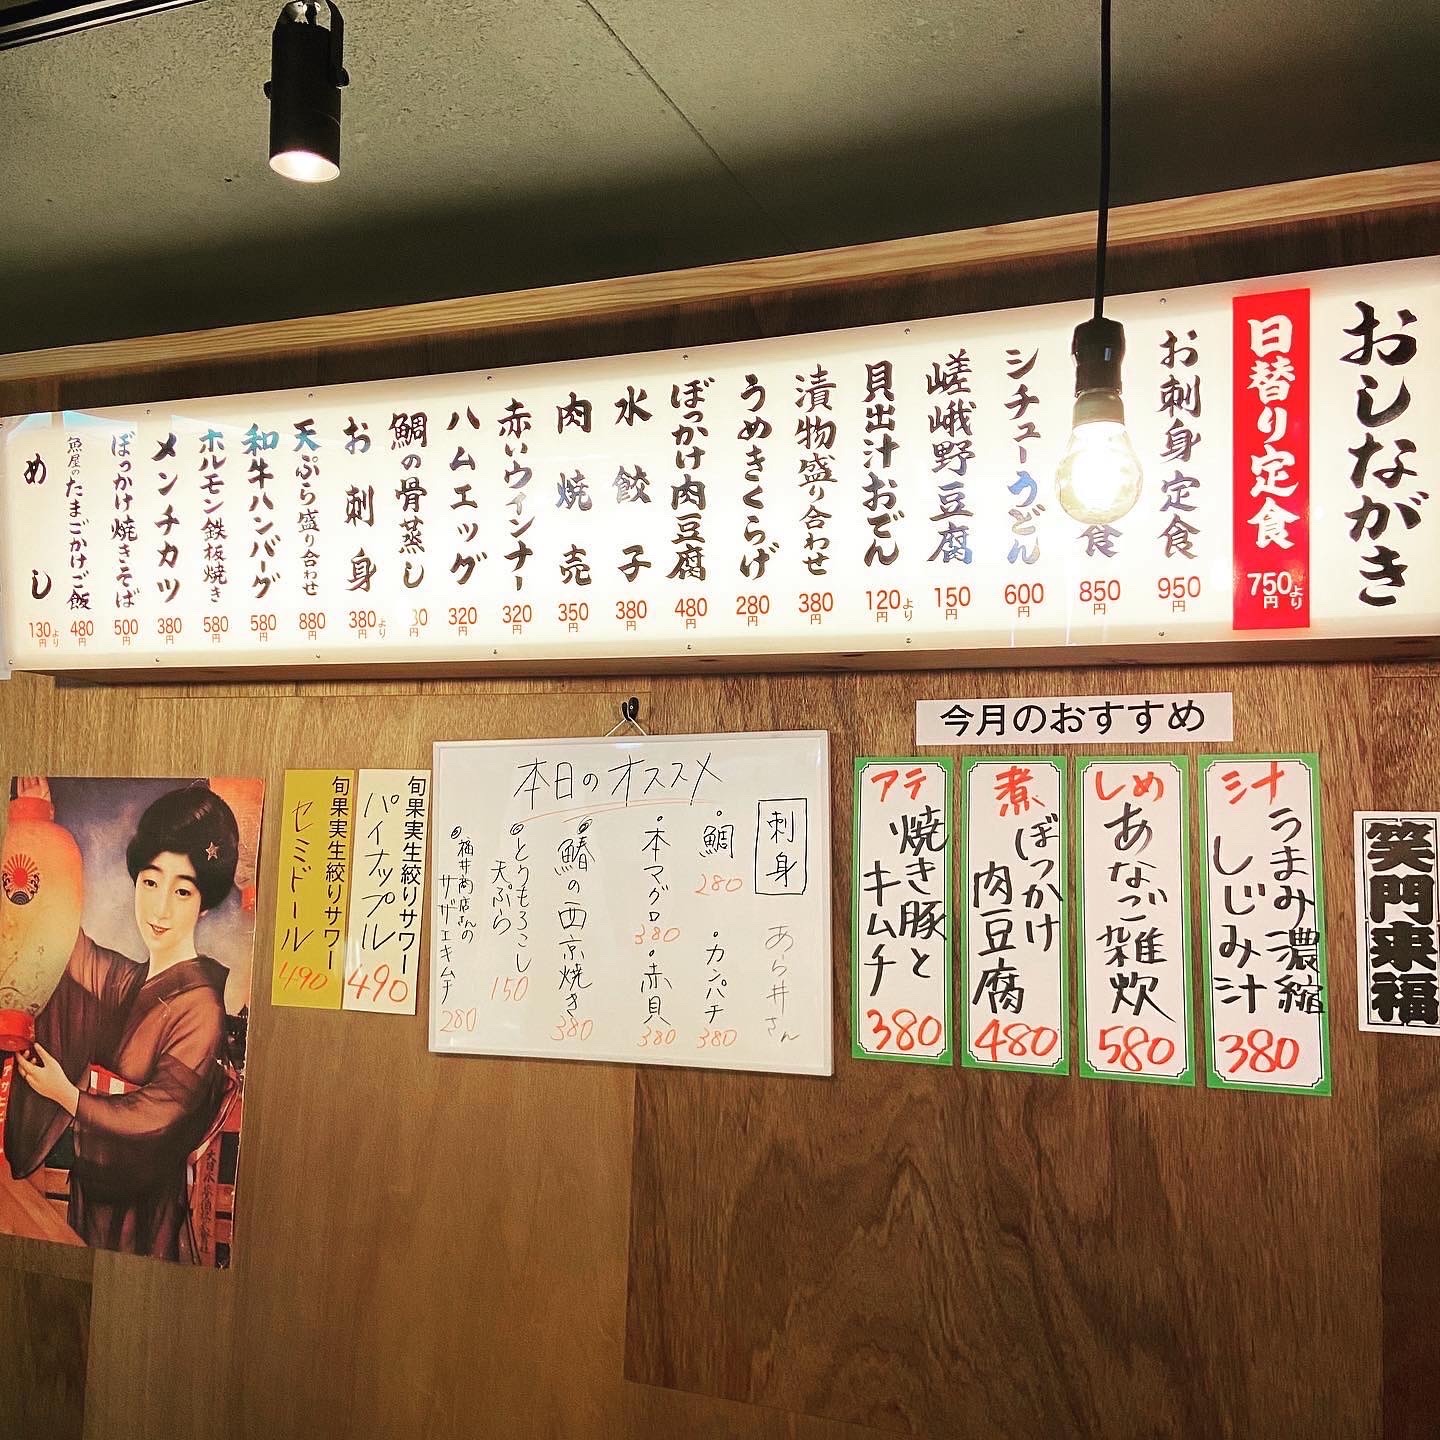 おしながき
日替り定食
750円より
お刺身定食
950円
食
850円
シチューうどん
600円
嵯峨野豆腐
150円
貝出汁おでん
120円より
漬物盛り合わせ
380円
うめきくらげ
280円
ぼっかけ肉豆腐
480円
水餃子
380円
肉焼売
350円
赤いウインナー
320円
ハムエッグ
320円
鯛の骨蒸し
80円
お刺身
380円より
天ぷら盛り合わせ
880円
和牛ハンバーグ
580円
ホルモン鉄板焼き
580円
メンチカツ
380円
ぼっかけ焼きそば
500円
魚屋のたまごかけご飯
480円
めし
130円より
今月のおすすめ
汁
うまみ濃縮
しじみ汁
380
しめ
あなご雑炊
580
煮
ぼっかけ
肉豆腐
480
アテ
焼き豚と
キムチ
380
笑門来福
本日のオススメ
刺身
あら井さん
・鯛
280
・カンパチ
380
・本マグロ
380
・赤貝
380
鰆の西京焼き
380
とうもろこし
天ぷら
150
福井商店さんの
サザエキムチ
280
旬果実生絞りサワー
パイナップル
490
旬果実生絞りサワー
セミドール
490